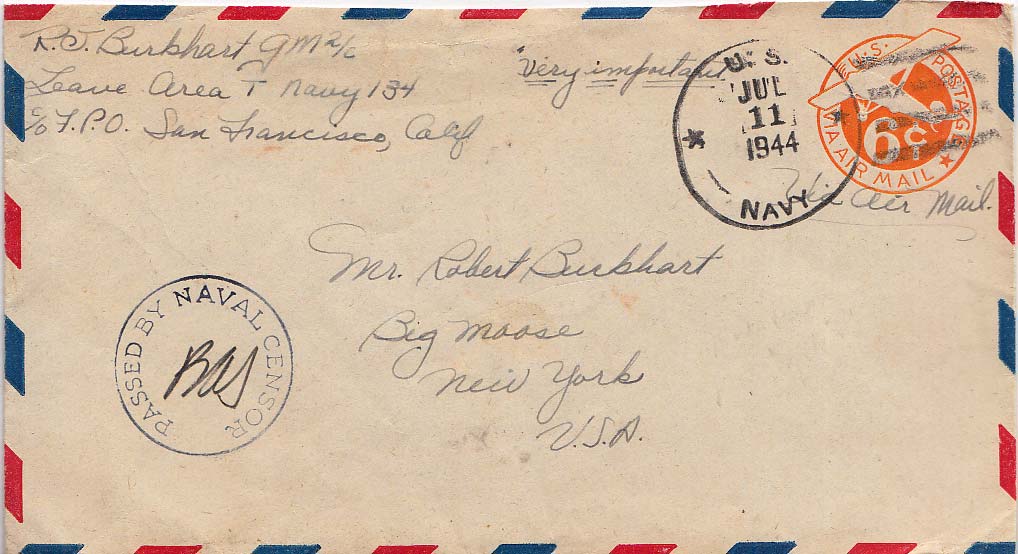 R.J. Burkhart GM 2/c
Leave Area T Navy 134
c/o F.P.O. San Francisco, Calif
"Very important"
U.S.
JUL
11
1944
NAVY
U.S. POSTAGE
6¢
VIA AIR MAIL
Via Air Mail.
Mr. Robert Burkhart
Big Moose
New York
U.S.A.
PASSED BY NAVAL CENSOR